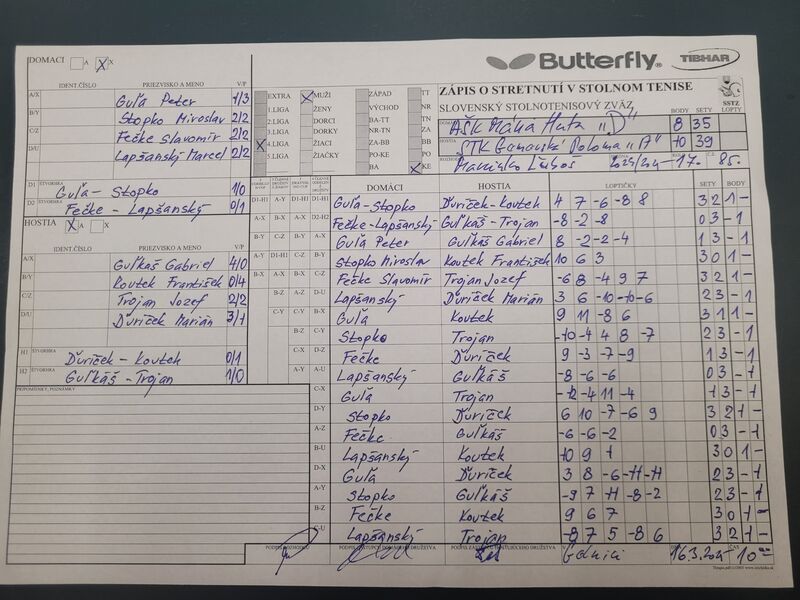 DOMÁCI A X
Butterfly TIBHAR
IDENT.ČÍSLO PRIEZVISKO A MENO V/P
A/X Guľa Peter 1/3
B/Y Stopko Miroslav 2/2
C/Z Fečke Slavomír 2/2
D/U Lapšanský Marcel 2/2
D1 ŠTVORHRA Guľa - Stopko 1/0
D2 ŠTVORHRA Fečke - Lapšanský 0/1
HOSTIA A X
IDENT.ČÍSLO PRIEZVISKO A MENO V/P
A/X Guľkáš Gabriel 4/0
B/Y Koutek František 0/4
C/Z Trojan Jozef 2/2
D/U Ďuríček Marián 3/1
H1 ŠTVORHRA Ďuríček - Koutek 0/1
H2 ŠTVORHRA Guľkáš - Trojan 1/0
PRIPOMIENKY, POZNÁMKY
EXTRA MUŽI ZÁPAD TT
1.LIGA ŽENY VÝCHOD NR
2.LIGA DORCI BA-TT TN
3.LIGA DORKY NR-TN ZA
4.LIGA ŽIACI ZA-BB BB
5.LIGA ŽIAČKY PO-KE PO
BA KE
ZÁPIS O STRETNUTÍ V STOLNOM TENISE
SLOVENSKÝ STOLNOTENISOVÝ ZVÄZ
SSTZ
BODY SETY LOPTY
AŠK Máša Huta "D" 8 35
STK Gemerská Poloma "A" 10 39
DOMÁCI HOSTIA LOPTIČKY SETY BODY
Guľa-Stopko Ďuríček-Koutek 4 7 -6 -8 8 3 2 1 -
Fečke-Lapšanský Guľkáš-Trojan -8 -2 -8 0 3 - 1
Guľa Peter Guľkáš Gabriel 8 -2 -2 -4 1 3 - 1
Stopko Miroslav Koutek František 10 6 3 3 0 1 -
Fečke Slavomír Trojan Jozef -6 8 -4 9 7 3 2 1 -
Lapšanský Ďuríček Marián 3 6 -10 -10 -6 2 3 - 1
Guľa Koutek 9 11 -8 6 3 1 1 -
Stopko Trojan -10 -4 4 8 -7 2 3 - 1
Fečke Ďuríček 9 -3 -7 -9 1 3 - 1
Lapšanský Guľkáš -8 -6 -6 0 3 - 1
Guľa Trojan -12 -4 11 -4 1 3 - 1
Stopko Ďuríček 6 10 -7 -6 9 3 2 1 -
Fečke Guľkáš -6 -6 -2 0 3 - 1
Lapšanský Koutek 10 9 1 3 0 1 -
Guľa Ďuríček 3 8 -6 -11 -11 2 3 - 1
Stopko Guľkáš -9 7 -11 -8 -2 2 3 - 1
Fečke Koutek 9 6 7 3 0 1 -
Lapšanský Trojan -8 7 5 -8 6 3 2 1 -